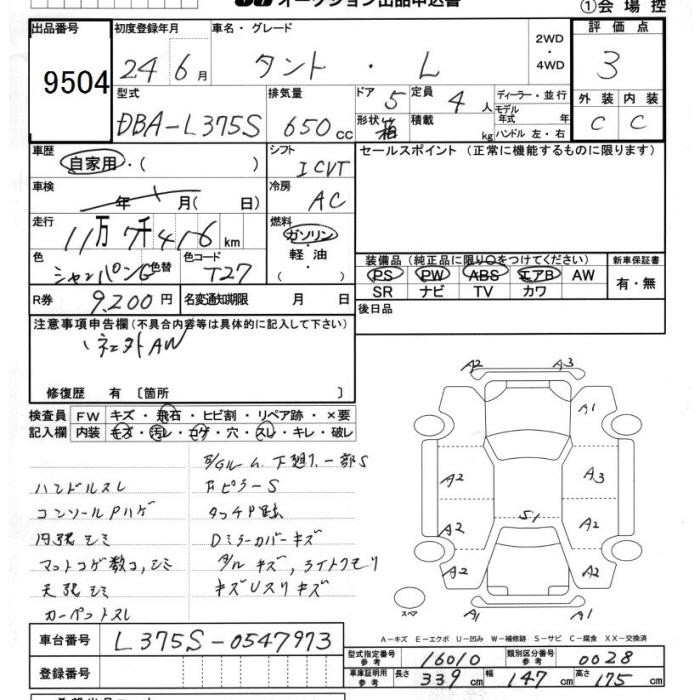 オークション出品申込書
①会場控
出品番号 初度登録年月 車名・グレード 2WD ・ 4WD 評価点
9504 24 6月 タント ・ L 3
型式 排気量 ドア 5 定員 4人 ディーラー・並行 外装 内装
DBA-L375S 650cc 形状 箱 積載 kg モデル年式 年 ハンドル 左・右 C C
車歴 自家用・( ) シフト ICVT セールスポイント (正常に機能するものに限ります)
車検 年 月( 日) 冷房 AC
走行 11万7千416km 燃料 ガソリン・軽油・
色 シャンパンG 色替 色コード T27 装備品(純正品に限り○をつけてください) 新車保証書
PS PW ABS エアB AW 有・無
SR ナビ TV カワ
R券 9,200円 名変通知期限 月 日 後日品
注意事項申告欄(不具合内容等は具体的に記入して下さい)
社外AW
修復歴 有 〔箇所 〕
検査員 FW キズ・飛石・ヒビ割・リペア跡・×要
記入欄 内装 モズ・汚レ・コゲ・穴・スレ・キレ・破レ
下廻り、一部S
ハンドルスレ FピラーS
コンソールPハゲ
内張シミ Dミラーカバーキズ
マットコゲ数コ,シミ キズ,ライトクモリ
天張シミ キズUスリキズ
カーペットスレ
A2 A3
A1
A2 A3
S1
A2 A2
A2 A2
A1 A1
スペア
A-キズ E-エクボ U-凹み W-補修跡 S-サビ C-腐食 XX-交換済
車台番号 L375S-0547973
型式指定番号 参考 16010 類別区分番号 参考 0028
登録番号 車庫証明用 参考 長さ 339cm 幅 147cm 高さ 175cm